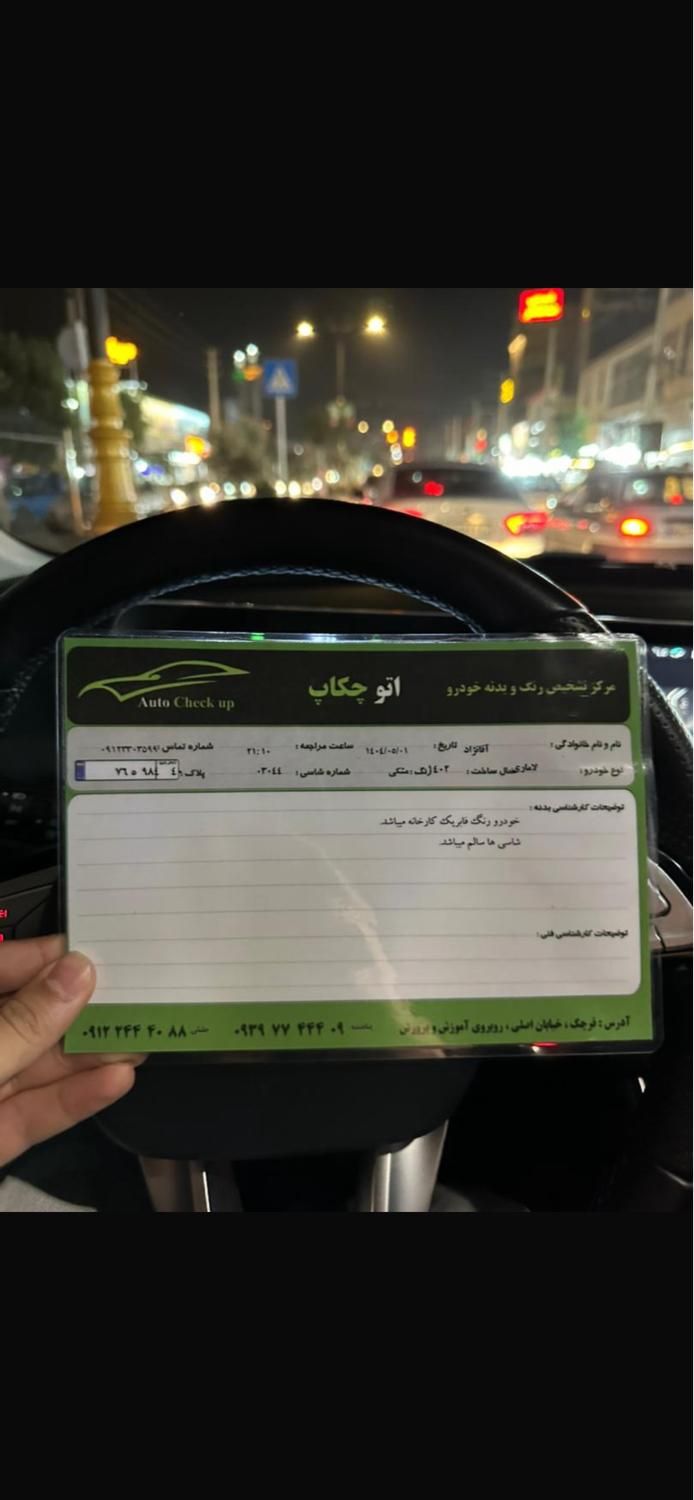 Auto Check up
اتو چکاپ
مرکز تشخیص رنگ و بدنه خودرو
نام و نام خانوادگی : آقانژاد تاریخ : ١٤٠٤/٠٥/٠١ ساعت مراجعه : ٢١:١٠ شماره تماس : ٠٩١٢٣٣٠٣٥٩٩
نوع خودرو : لاماری سال ساخت : ١٤٠٢ رنگ : مشکی شماره شاسی : ٠٣٠٤٤ پلاک :
توضیحات کارشناسی بدنه :
خودرو رنگ فابریک کارخانه میباشد.
شاسی ها سالم میباشد.
توضیحات کارشناسی فنی :
آدرس : قرچک ، خیابان اصلی ، روبروی آموزش و پرورش
۰۹۳۹ ۷۷ ۴۴۴ ۰۹
۰۹۱۲ ۲۴۴ ۴۰ ۸۸